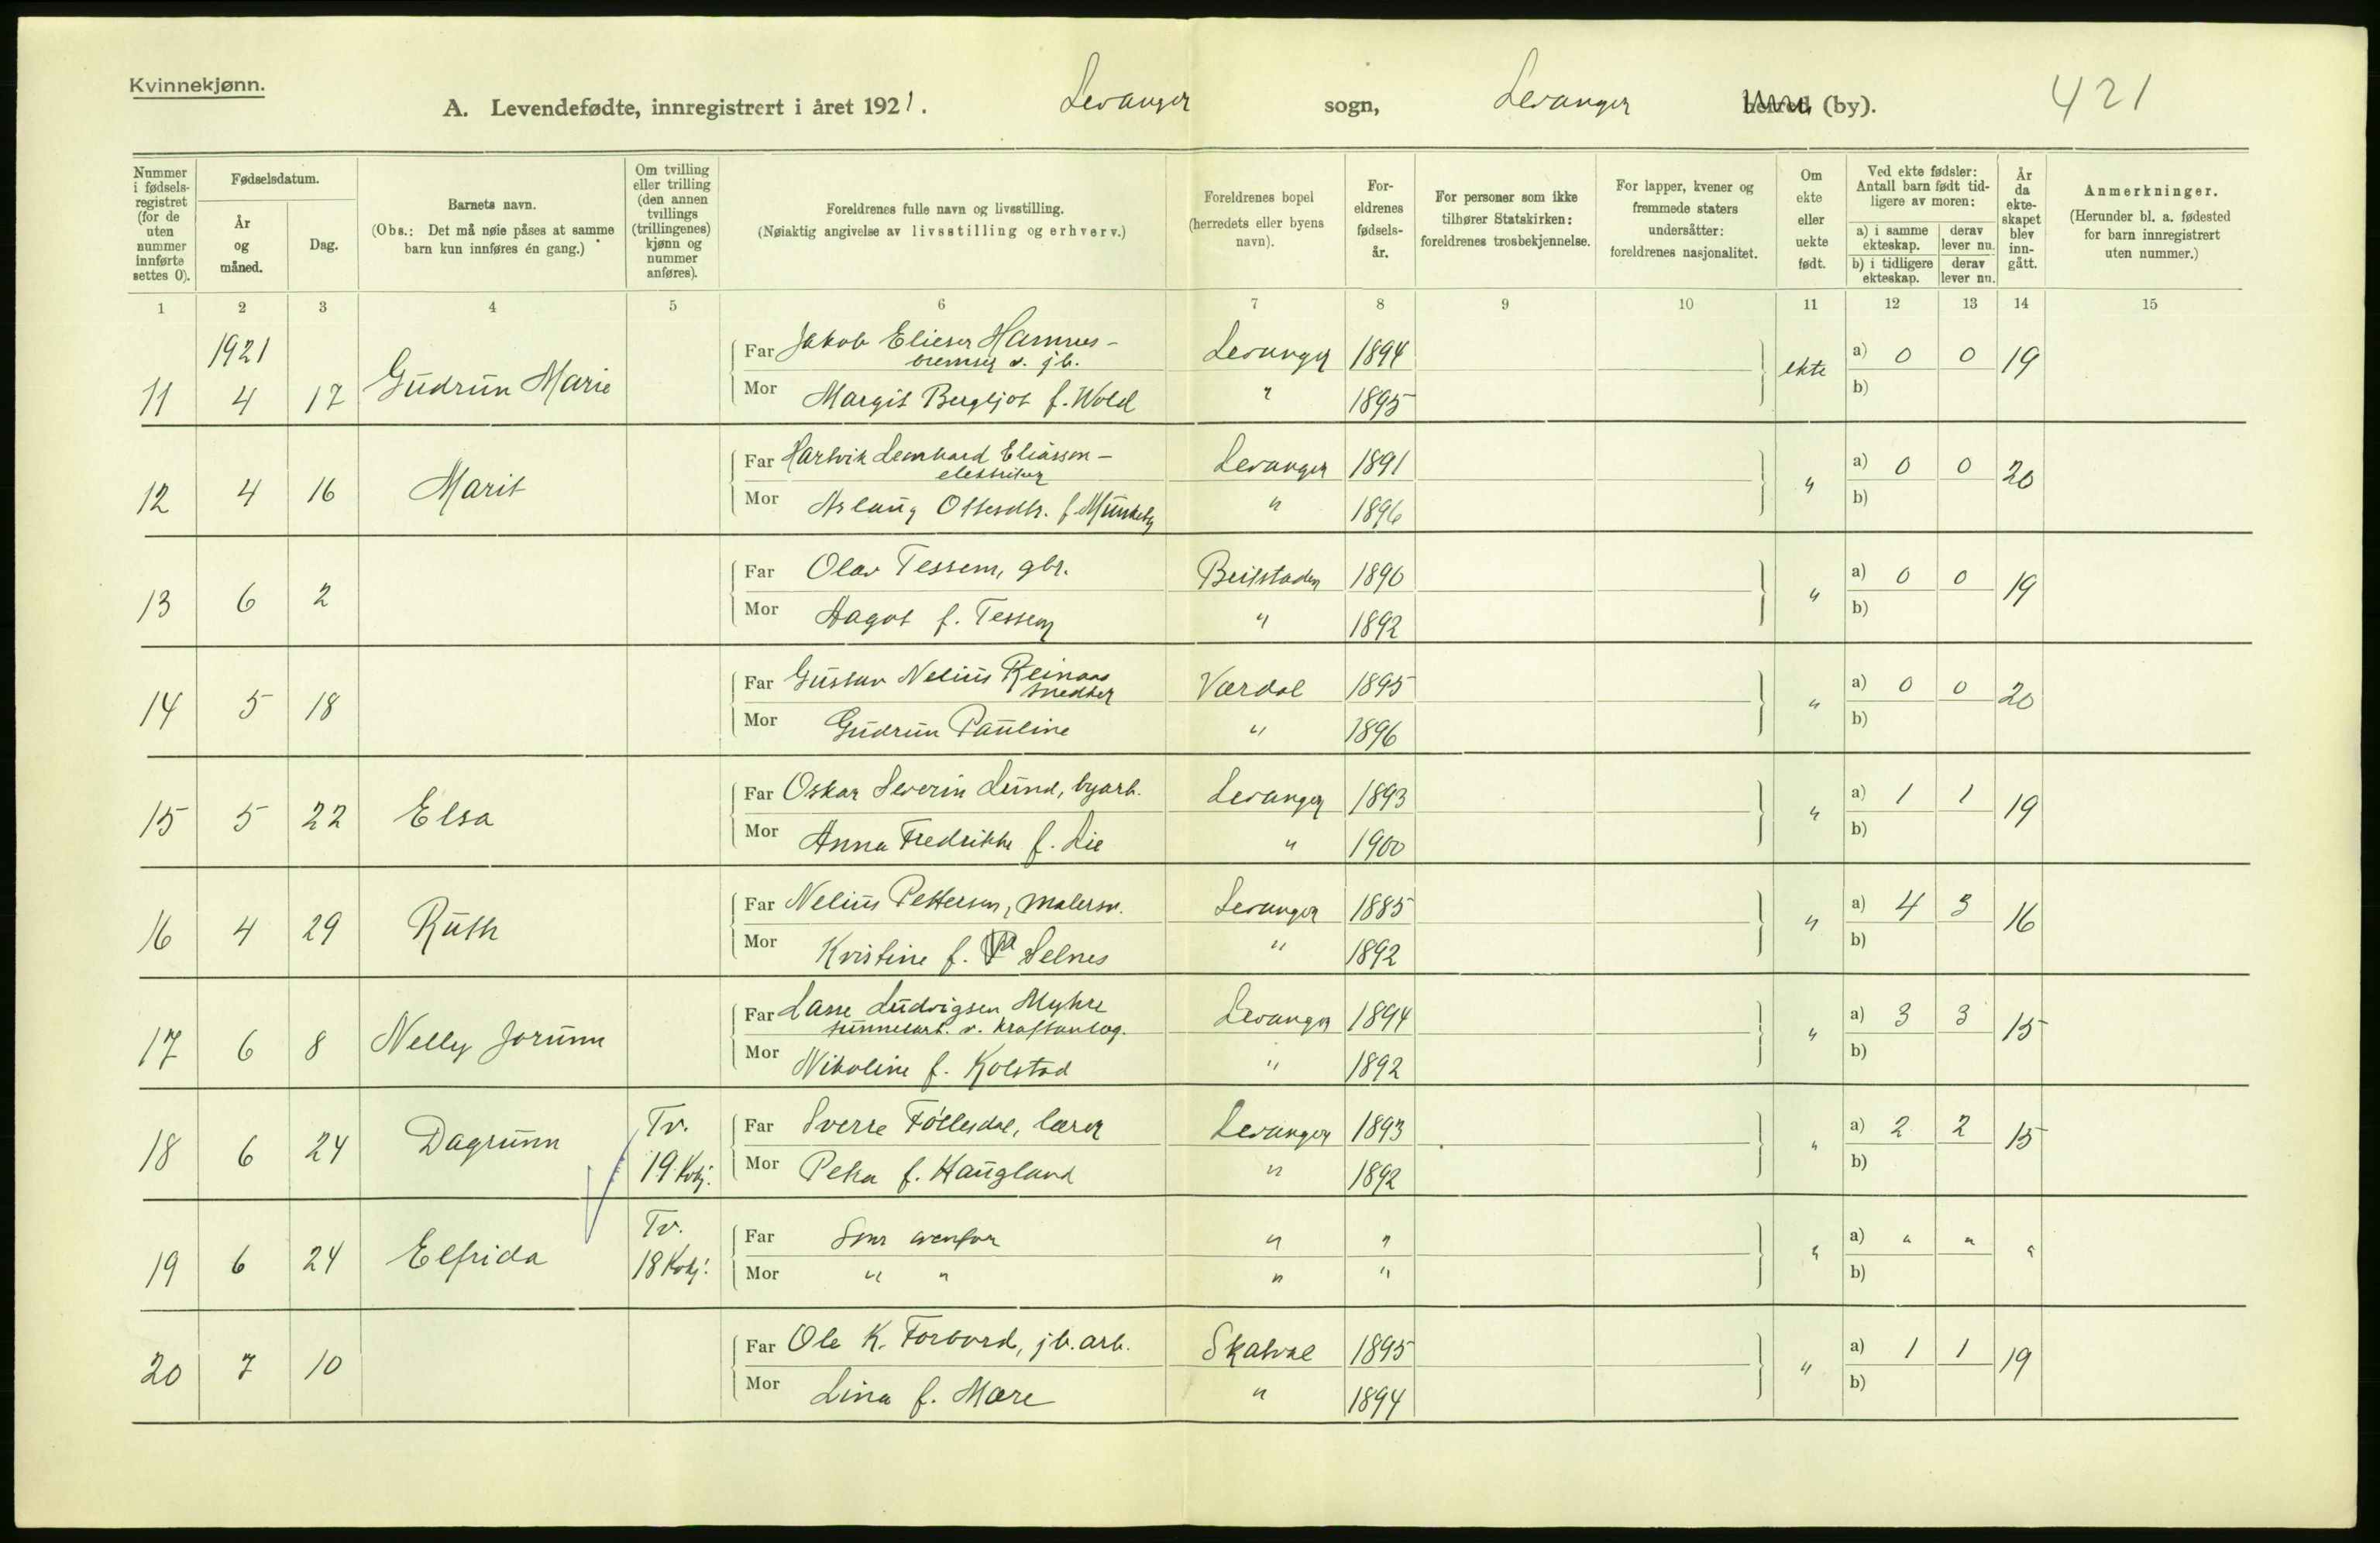 Kvinnekjønn.
A. Levendefødte, innregistrert i året 1921. Levanger sogn, Levanger herred (by). 421
Nummer i fødselsregistret (for de uten nummer innførte settes 0).
Fødselsdatum.
År og måned.
Dag.
Barnets navn.
(Obs.: Det må nøie påses at samme barn kun innføres én gang.)
Om tvilling eller trilling (den annen tvillings (trillingenes) kjønn og nummer anføres).
Foreldrenes fulle navn og livsstilling.
(Nøiaktig angivelse av livsstilling og erhverv.)
Foreldrenes bopel (herredets eller byens navn).
Foreldrenes fødselsår.
For personer som ikke tilhører Statskirken: foreldrenes trosbekjennelse.
For lapper, kvener og fremmede staters undersåtter: foreldrenes nasjonalitet.
Om ekte eller uekte født.
Ved ekte fødsler: Antall barn født tidligere av moren:
a) i samme ekteskap. derav lever nu.
b) i tidligere ekteskap. derav lever nu.
År da ekteskapet blev inngått.
Anmerkninger.
(Herunder bl. a. fødested for barn innregistrert uten nummer.)
1 2 3 4 5 6 7 8 9 10 11 12 13 14 15
1921
Far Jakob Elieser Hamnes - Levanger 1894
bremser v. jb.
11 4 17 Gudrun Marie ekte a) 0 0 19
Mor Margit Bergljot f. Wold " 1895 b)
Far Hartvik Leonhard Eliasson - Levanger 1891
elektriker
12 4 16 Marit " a) 0 0 20
Mor Aslaug Ottersdtr. f. Munkeby " 1896 b)
Far Olav Tessem, gbr. Beitstaden 1890
13 6 2 " a) 0 0 19
Mor Aagot f. Tessem " 1892 b)
Far Gustav Nelius Reinaas Værdal 1895
snedker
14 5 18 " a) 0 0 20
Mor Gudrun Pauline " 1896 b)
Far Oskar Severin Lund, byarb. Levanger 1893
15 5 22 Elsa " a) 1 1 19
Mor Anna Fredrikke f. Lie " 1900 b)
Far Nelius Pettersen, malersv. Levanger 1885
16 4 29 Ruth " a) 4 3 16
Mor Kristine f. Selnes " 1892 b)
Far Lasse Ludvigsen Myhre Levanger 1894
tunnelarb. v. kraftanlag.
17 6 8 Nelly Jorunn " a) 3 3 15
Mor Nikoline f. Kolstad " 1892 b)
Far Sverre Föllesdal, lærer Levanger 1893
18 6 24 Dagrunn Tv. 19 Kvkj. " a) 2 2 15
Mor Petra f. Haugland " 1892 b)
Far Som ovenfor " "
19 6 24 Elfrida Tv. 18 Kvkj. " a) " " "
Mor " " " " b)
Far Ole K. Forbord, jb. arb. Skatval 1895
20 7 10 " a) 1 1 19
Mor Lina f. Mære " 1894 b)